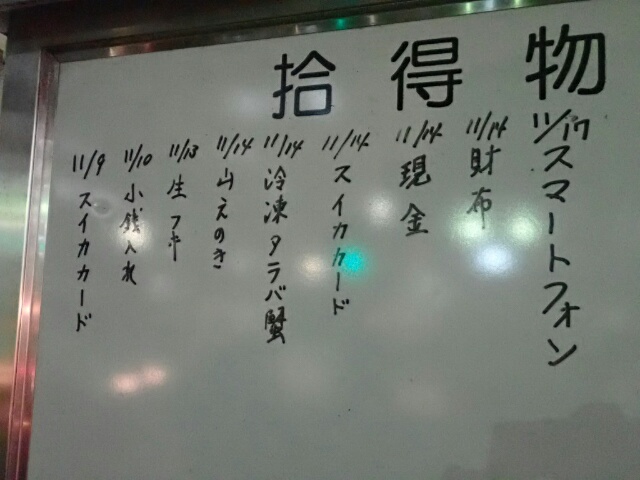 拾得物
11/17 スマートフォン
11/14 財布
11/14 現金
11/14 スイカカード
11/14 冷凍タラバ蟹
11/14 山えのき
11/13 生フキ
11/10 小銭入れ
11/9 スイカカード